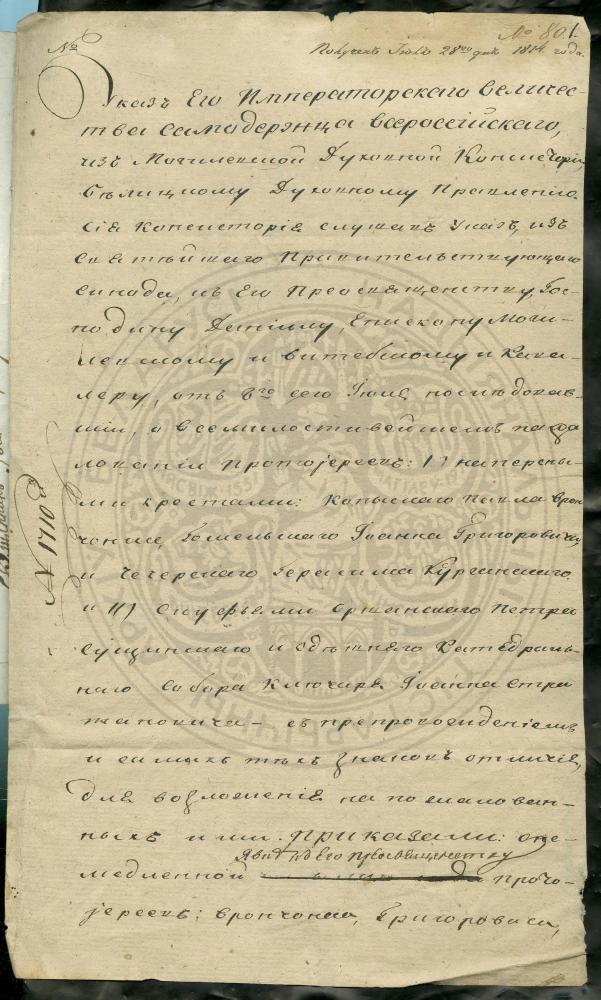 № 801.
№ Полученъ Iюля 28го дня 1814 года.
Указъ Его Императорскаго Величес-
тва самодержца всероссiйскаго,
изъ Могилевской Духовной Консисторiи,
Бѣлицкому Духовному Правленiю.
Сiя Консисторiя слушавъ указъ, изъ
Святѣйшаго Правительствующаго
Синода, къ Его Преосвященству, Гос-
подину Данiилу, Епископу Моги-
левскому и Витебскому и Кава-
леру, отъ его Iюля последовав-
шiй, о всемилостивейшемъ пожа
лованiи протоjереевъ: I) наперсны-
ми крестами: Копыскаго Павла Врон
чонка, Гомельскаго Iоанна Григоровича,
и Чечерскаго Герасима
и II) Скуфьями Оршанскаго Петра
Сущинскаго и здѣшняго Катедраль-
наго Собора Ключаря Iоанна Стра
жановича — съ препровожденiемъ
и самыхъ тѣхъ знаковъ отличiя,
для возложенiя на пожалован-
ныхъ ими. Приказали: оне-
явиться Его Преосвященству
медленной прото-
jереевъ: Врончонка, Григоровича,